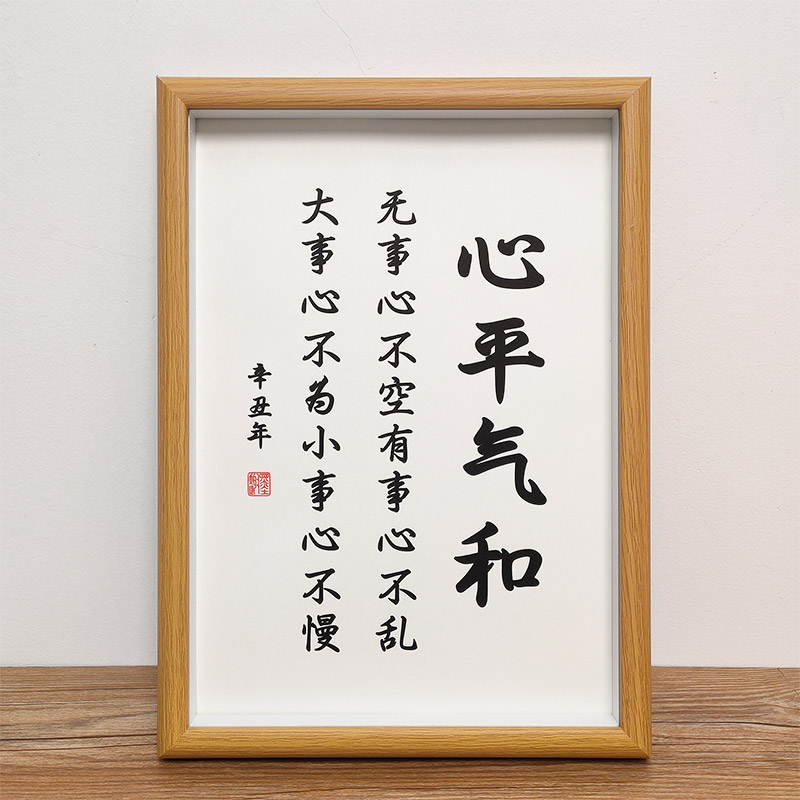 心平气和
无事心不空有事心不乱
大事心不为小事心不慢
辛丑年